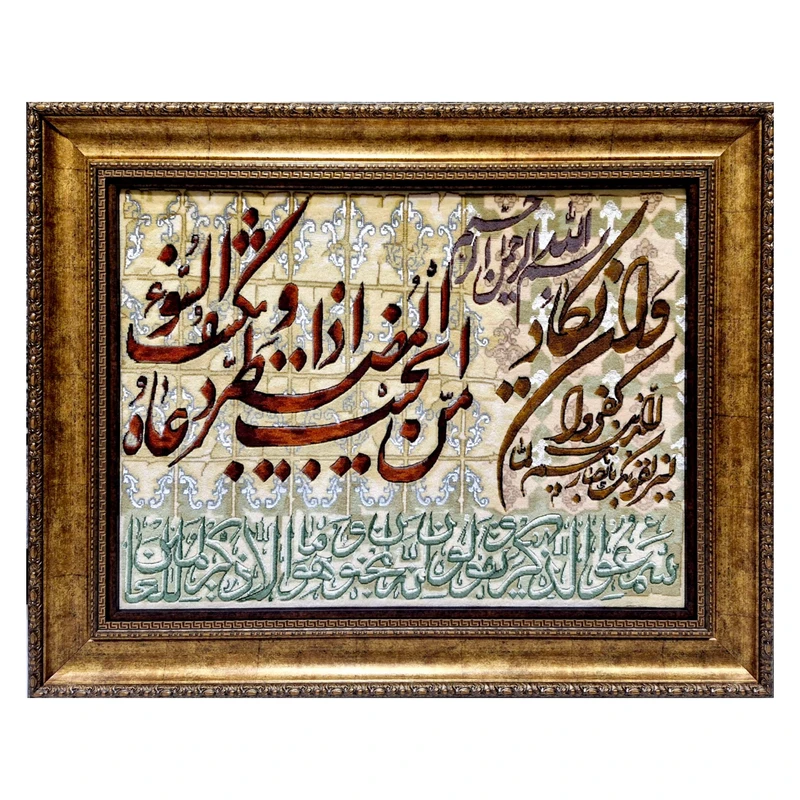 بسم الله الرحمن الرحیم
وان یکاد
الذین کفروا
لیزلقونک بابصارهم لما
سمعوا الذکر ویقولون انه لمجنون وما هو الا ذکر للعالمین
امن یجیب المضطر اذا دعاه ویکشف السوء